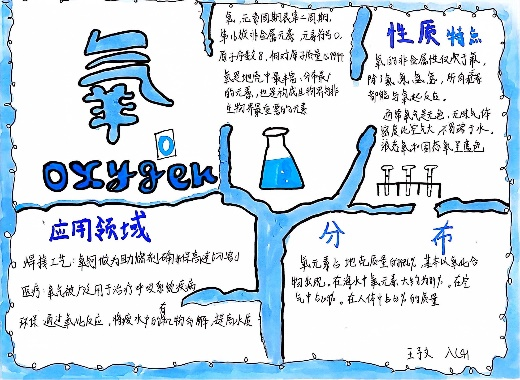 氧
O
oxygen
氧，元素周期表第二周期，
第VIA族非金属元素 元素符号O，
原子序数8，相对原子质量15.999
氧是地壳中最丰富、分布最广
的元素，也是构成生物界与非
生物界最重要的元素
性质 特点
氧的非金属性仅次于氟，
除了氦、氖、氩、氪，所有元素
都能与氧起反应。
通常氧气是无色，无味气体
密度比空气大 不易溶于水。
液态氧和固态氧呈蓝色
应用领域
焊接工艺：氧
医疗：氧气被广泛用于治疗呼吸系统疾病
环保 通过氧化反应，将废水中的有物分解，提高水质
分 布
氧元素占地壳质量的 基本以氧化合
物出现。在海水中氧元素大约为 在空
气中占 在人体中占 的质量
八